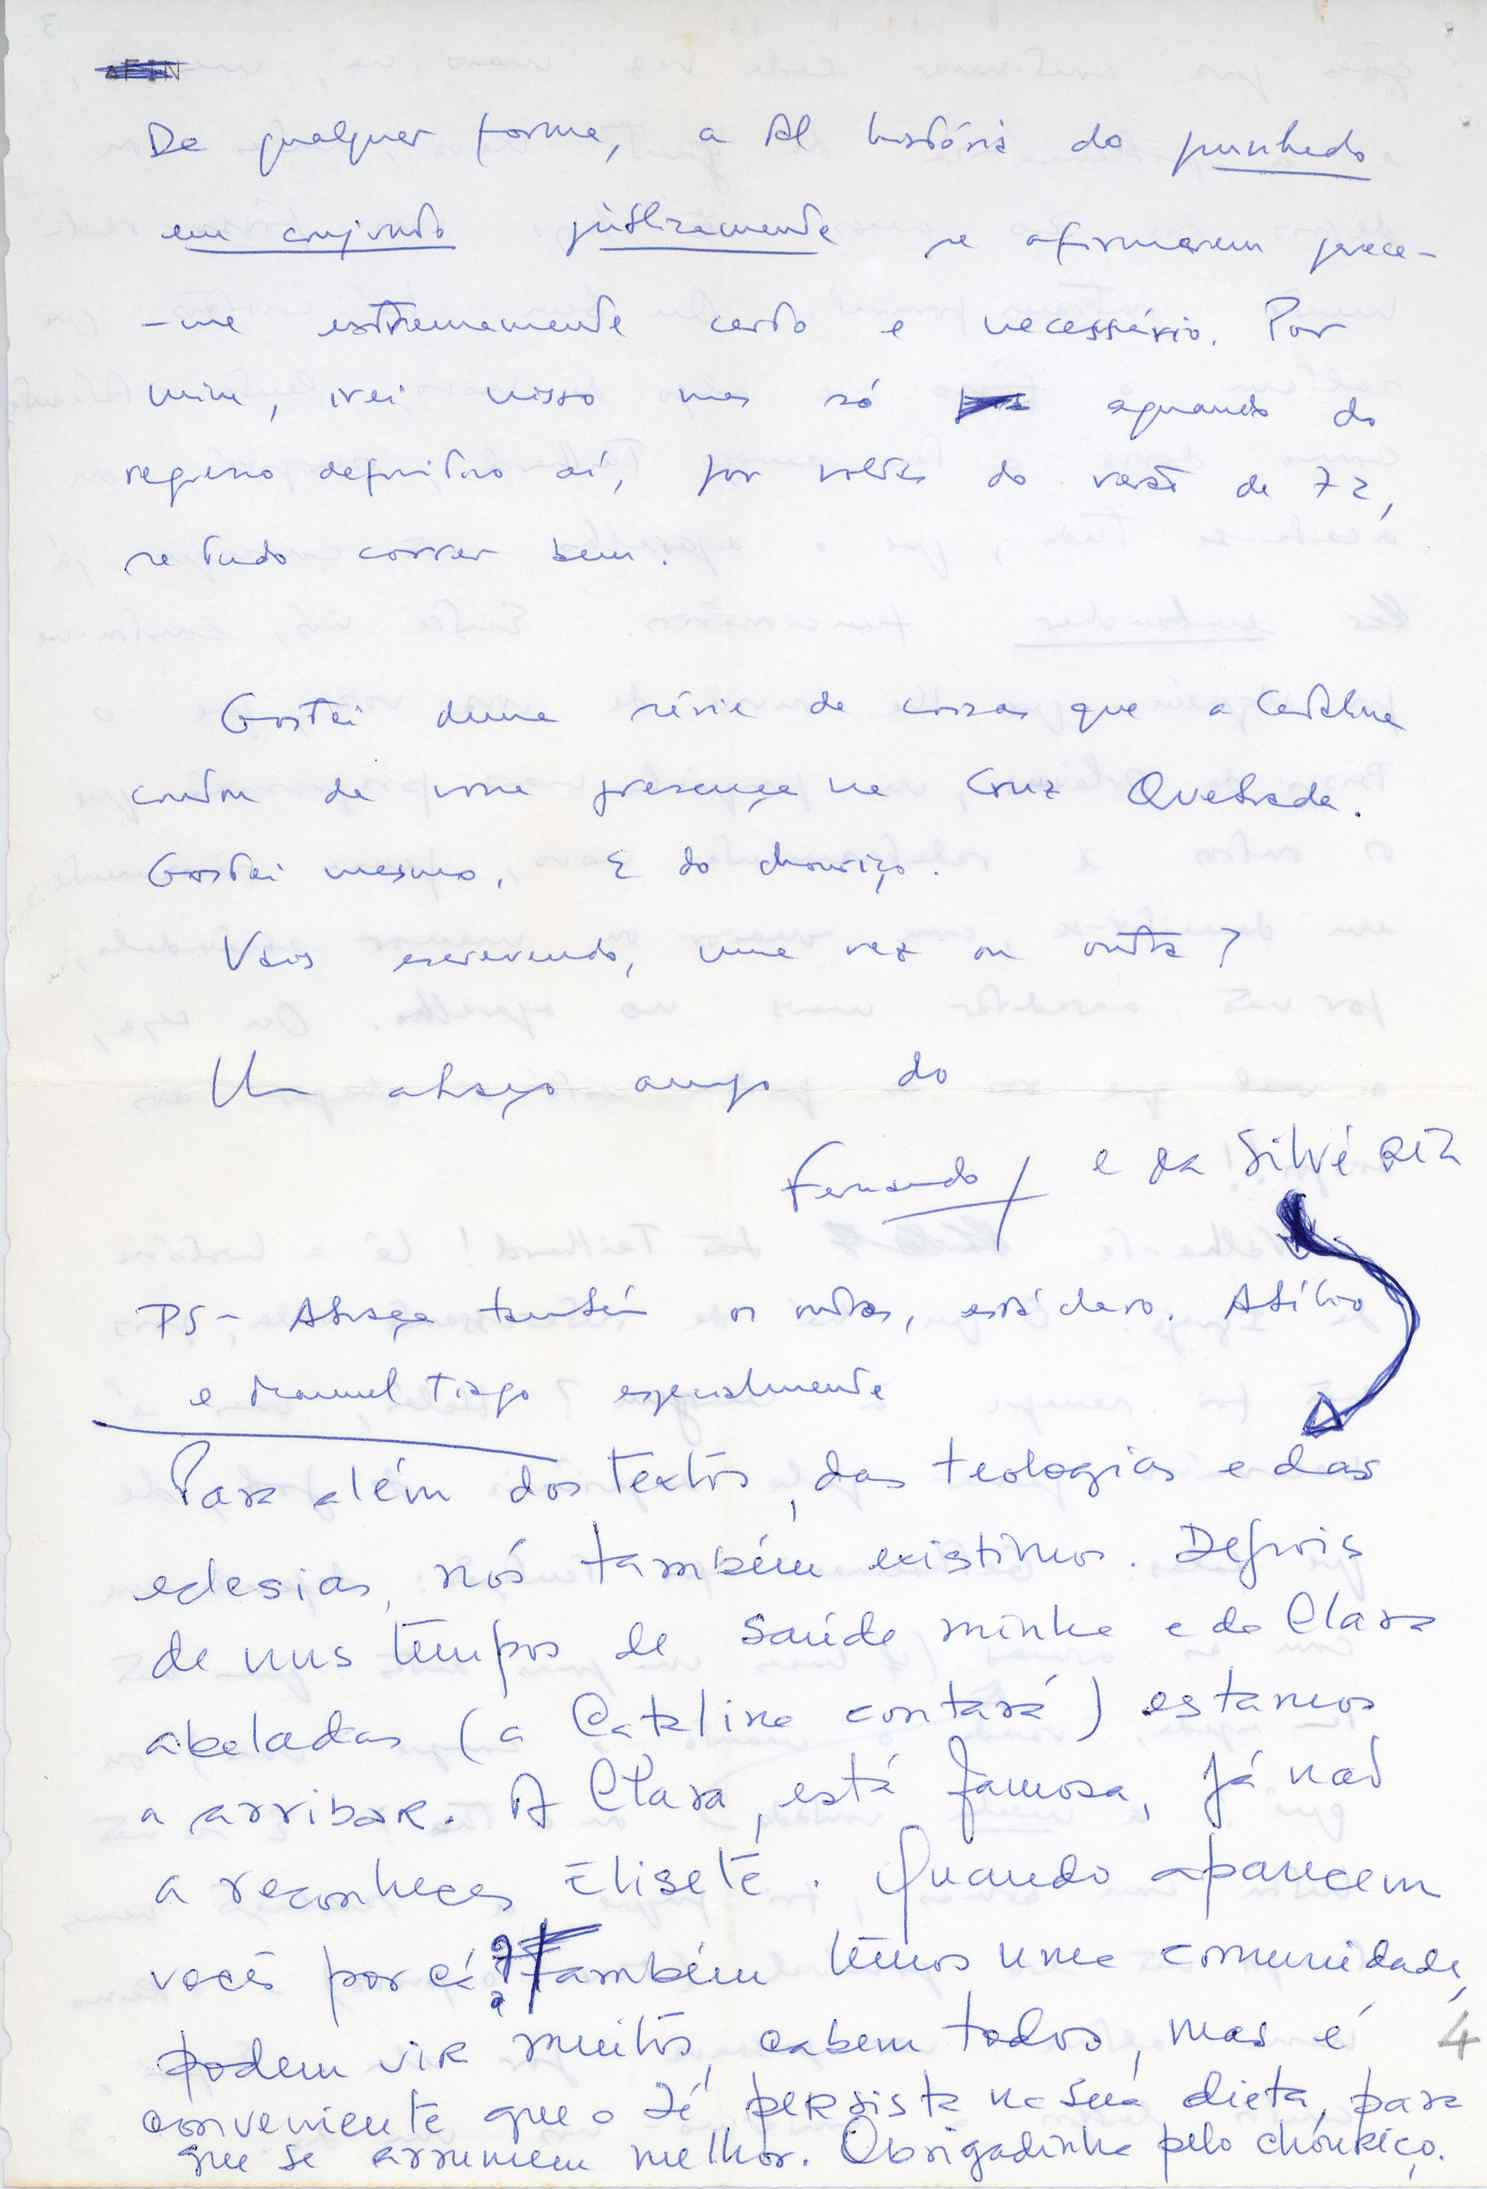 De qualquer forma, a tal história do punhado
em conjunto públicamente se afirmarem parece-
-me extremamente certo e necessário. Por
mim, irei nisso mas só aquando do
regresso definitivo aí, por voltas do verão de 72,
se tudo correr bem.
Gostei duma série de coisas que a Catalina
contou da vossa presença na Cruz Quebrada.
Gostei mesmo. E do chouriço.
Vais escrevendo, uma vez ou outra?
Um abraço amigo do
Fernando / e da Silvéria
PS - Abraça também os outros, está claro. Abílio
e Manuel Tiago especialmente
Para além dos textos, das teologias e das
eclesias, nós também existimos. Depois
de uns tempos de saúde minha e da Clara
abaladas (a Catalina contará) estamos
a arribar. A Clara, está famosa, já não
a reconheces Elisete. Quando aparecem
vocês por cá? Também temos uma comunidade,
podem vir muitos, cabem todos, mas é
conveniente que o Zé persista na sua dieta, para
que se arrumem melhor. Obrigadinha pelo chouriço.
4